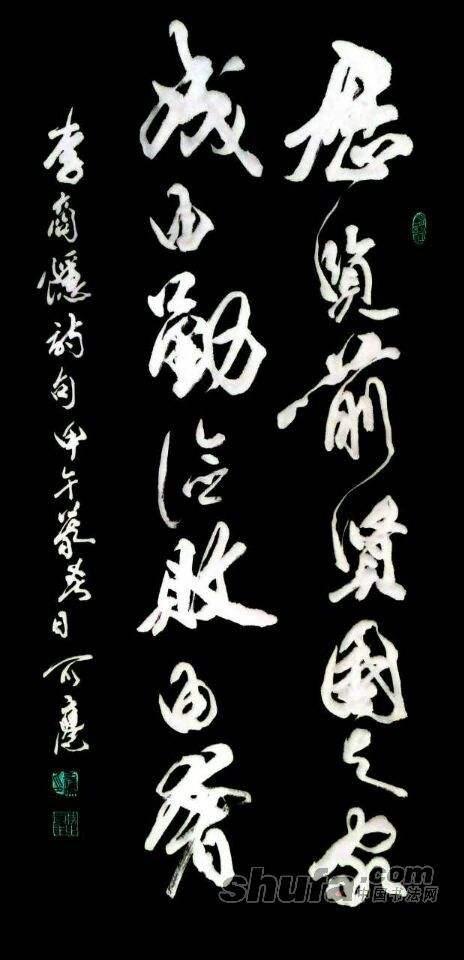 歷覽前賢國與家
成由勤儉敗由奢
李商隱詩句甲午暮春日
shufa.com
中国书法网